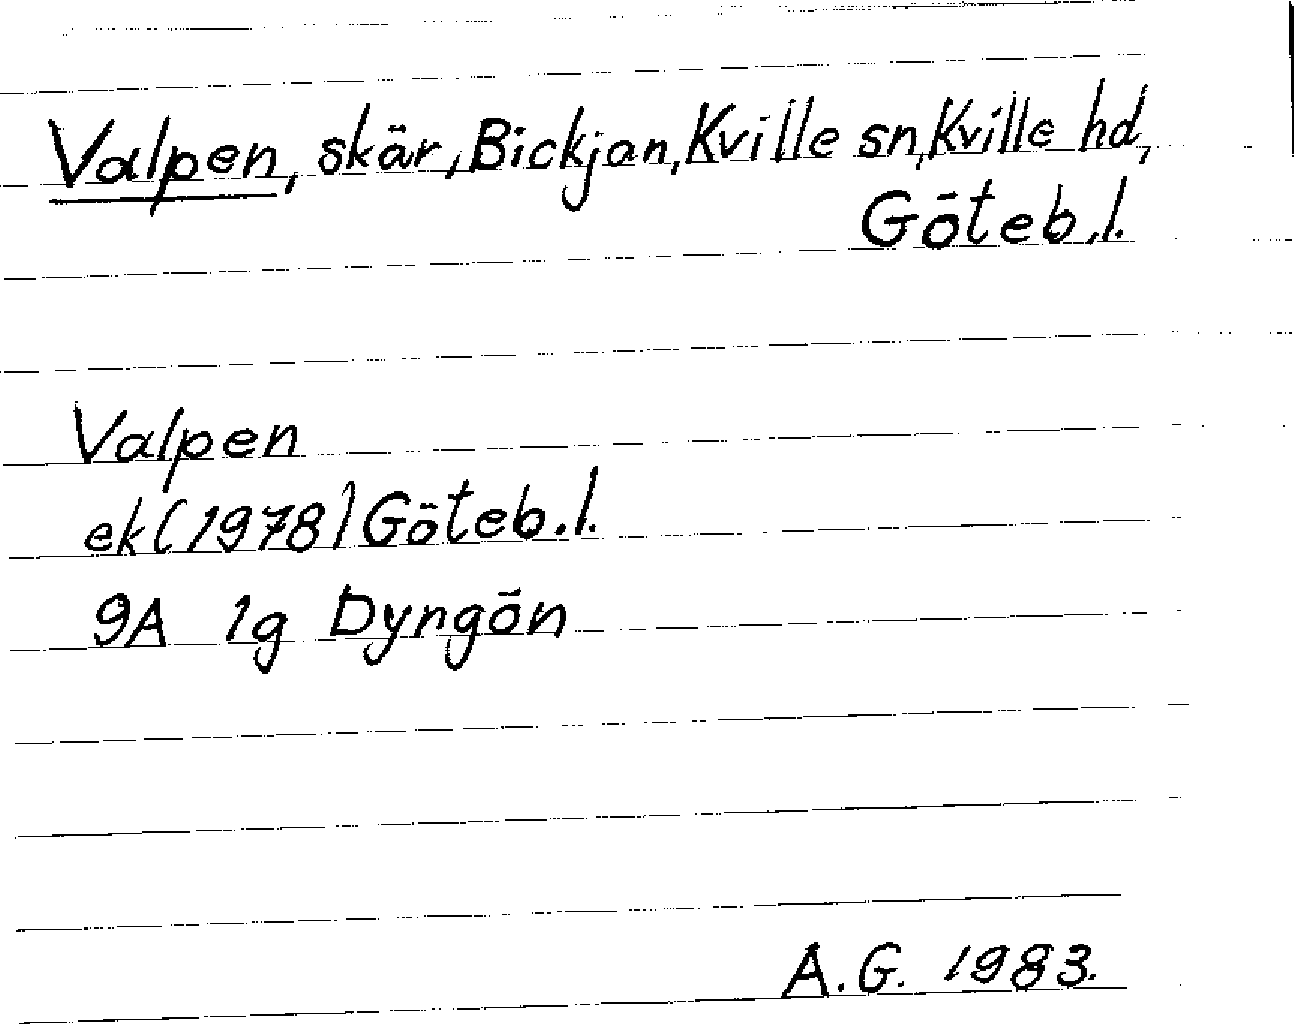 Valpen, skär, Bickjan, Kville sn, Kville hd,
Göteb.l.
Valpen
ek (1978) Göteb.l.
9A 1g Dyngön
A.G. 1983.